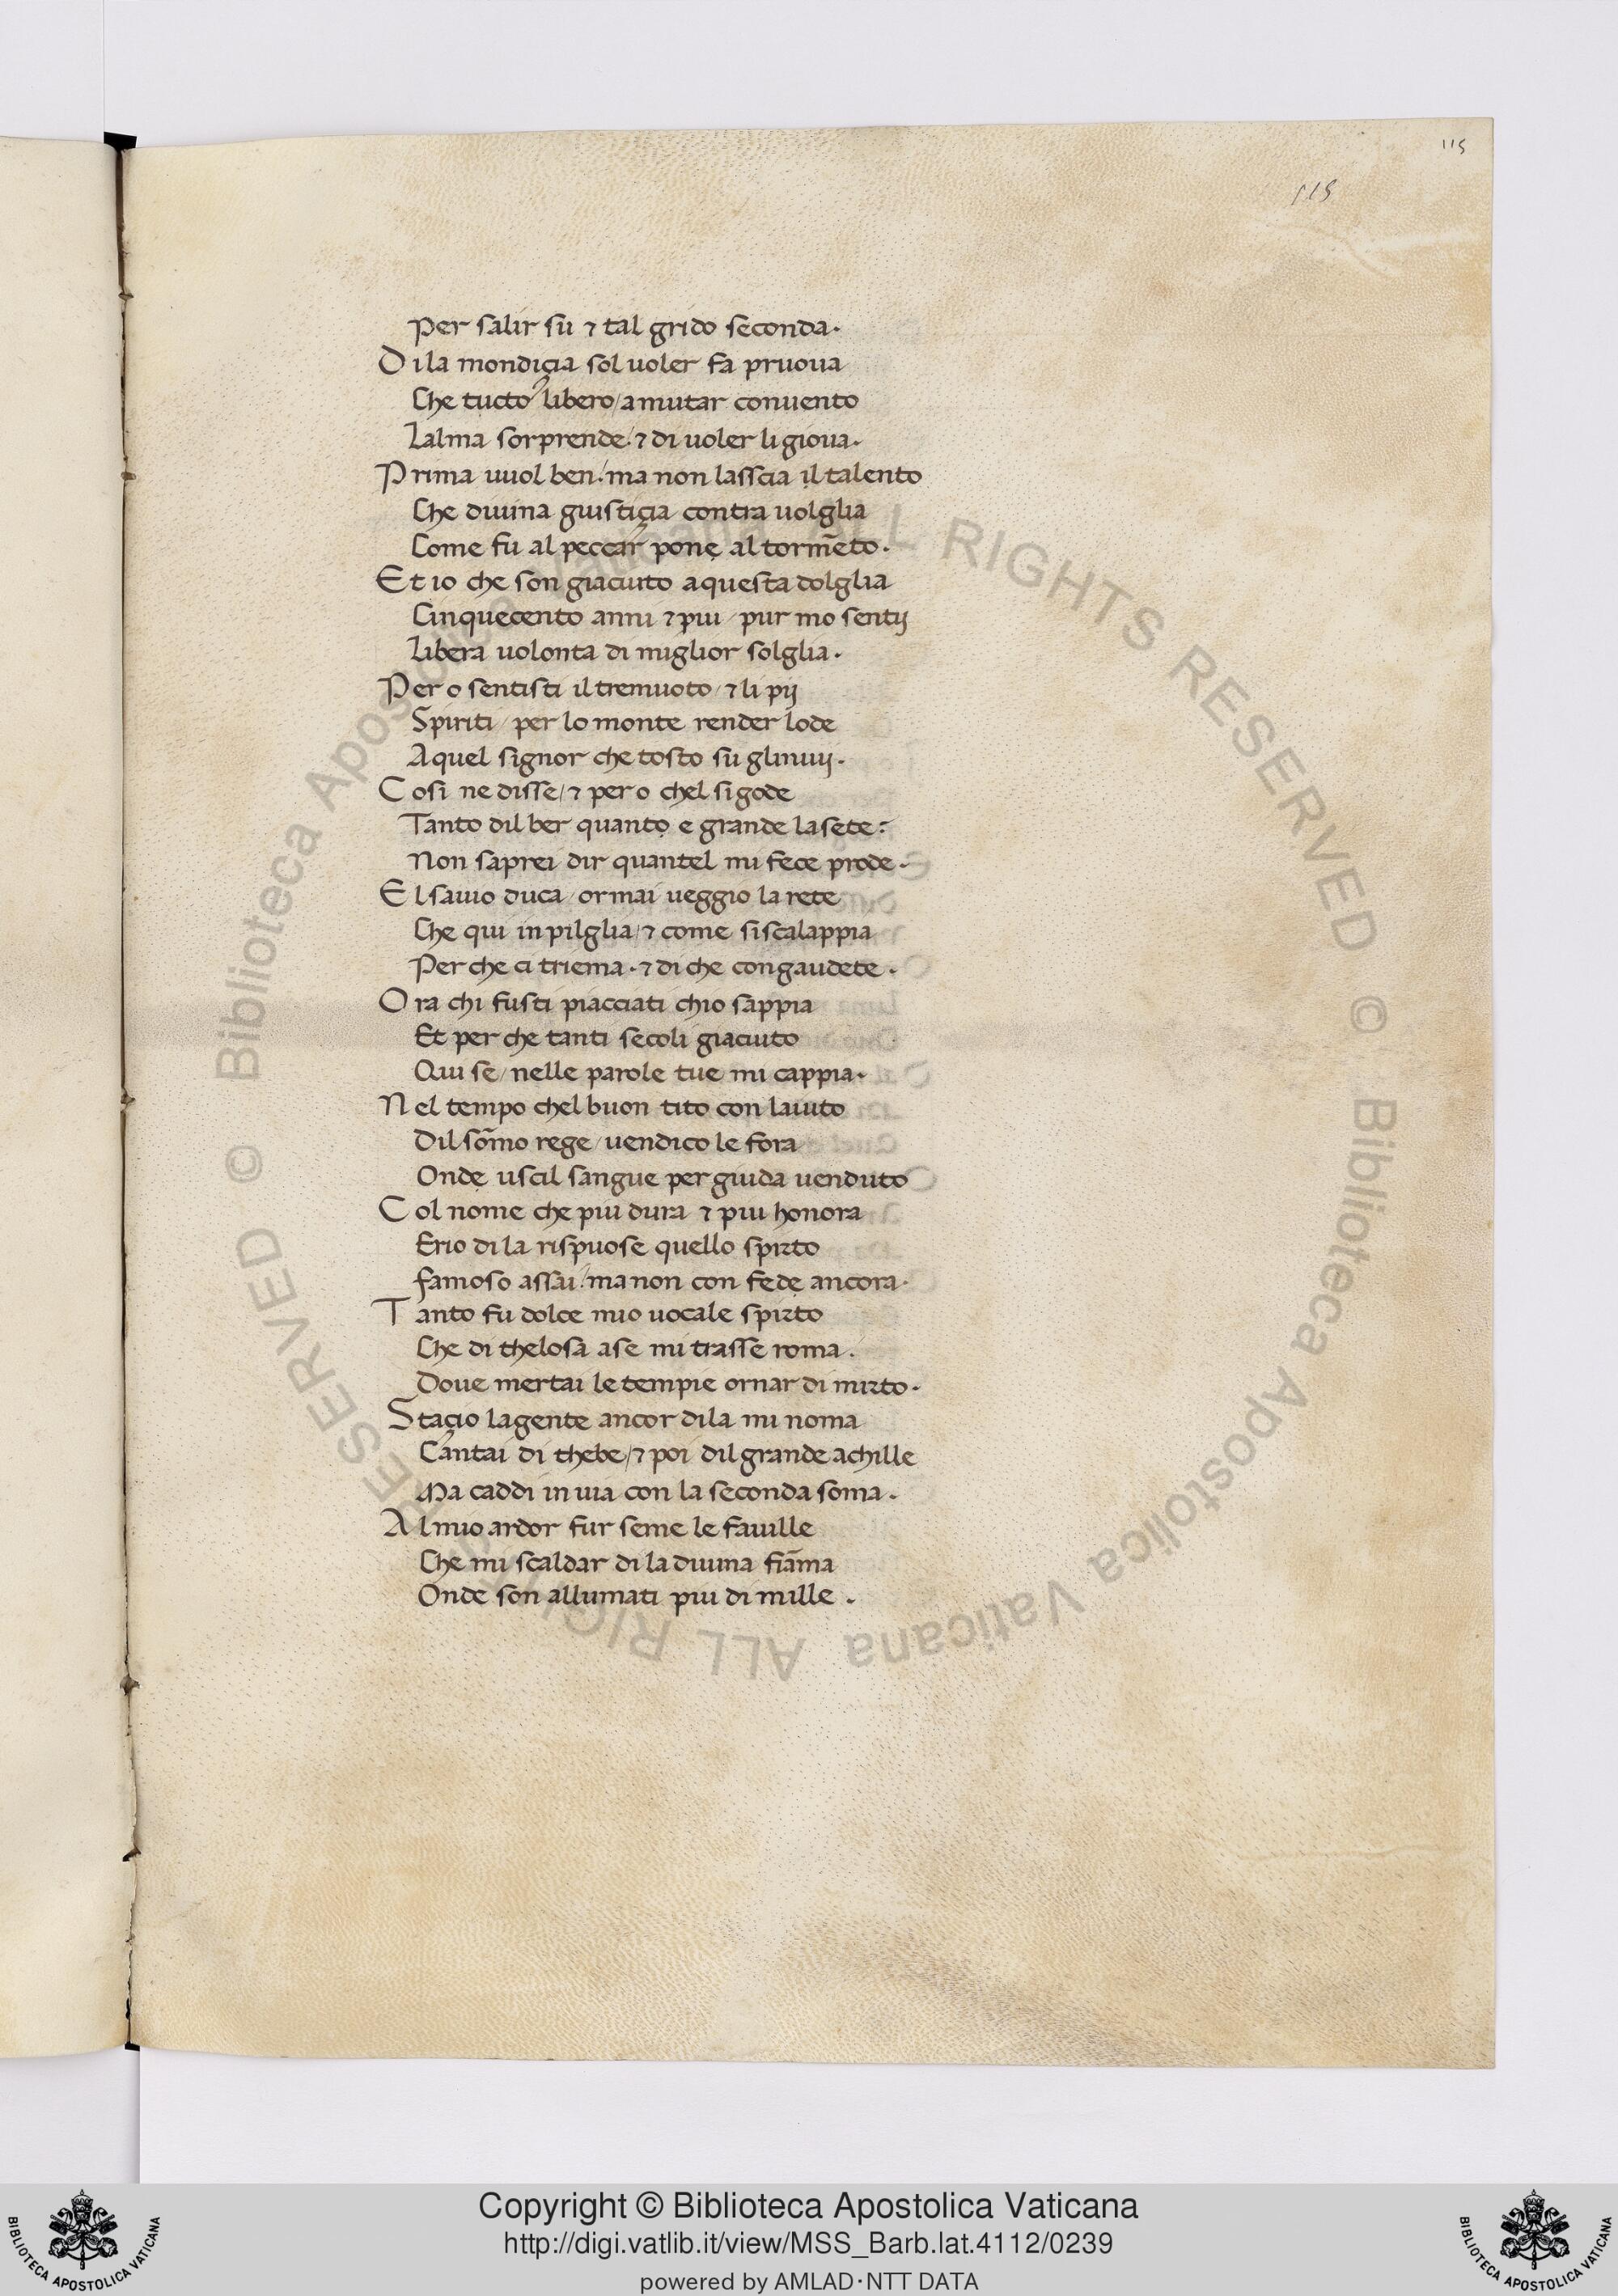 115
115
Per salir su ⁊ tal grido seconda·
Di la mondiçia sol uoler fa pruoua
Che tucto libero / a mutar conuento
Lalma sorprende / ⁊ di uoler li gioua·
Prima uuol ben / ma non lasscia il talento
Che diuina giustiçia contra uolglia
Come fu al peccar pone al torm̄eto·
Et io che son giaciuto a questa dolglia
Cinquecento anni ⁊ piu / pur mo sentij
Libera uolonta di miglior solglia·
Pero sentisti il tremuoto / ⁊ li pij
Spiriti / per lo monte render lode
A quel signor che tosto su glinuij·
Cosi ne disse / ⁊ pero chel si gode
Tanto dil ber quanto e grande la sete:
Non saprei dir quantel mi fece prode·
El sauio duca / ormai ueggio la rete
Che qui in pilglia / ⁊ come si scalappia
Per che ci triema · ⁊ di che congaudete·
Ora chi fusti piacciati chio sappia
Et per che tanti secoli giaciuto
Qui se / nelle parole tue mi cappia·
Nel tempo chel buon tito con laiuto
Dil som̄o rege / uendico le fora
Onde uscil sangue per giuda uenduto
Col nome che piu dura ⁊ piu honora
Erio di la rispuose quello spirto
famoso assai / ma non con fede ancora·
Tanto fu dolce mio uocale spirto
Che di tholosa a se mi trasse roma·
Doue mertai le tempie ornar di mirto·
Staçio la gente ancor di la mi noma
Cantai di thebe / ⁊ poi dil grande achille
Ma caddi in uia con la seconda soma·
Al mio ardor fur seme le fauille
Che mi scaldar di la diuina fiām̄a
Onde son allumati piu di mille·
© Biblioteca Apostolica Vaticana ALL RIGHTS RESERVED © Biblioteca Apostolica Vaticana ALL RIGHTS RESERVED
Copyright © Biblioteca Apostolica Vaticana
http://digi.vatlib.it/view/MSS_Barb.lat.4112/0239
powered by AMLAD·NTT DATA
BIBLIOTECA APOSTOLICA VATICANA
BIBLIOTECA APOSTOLICA VATICANA